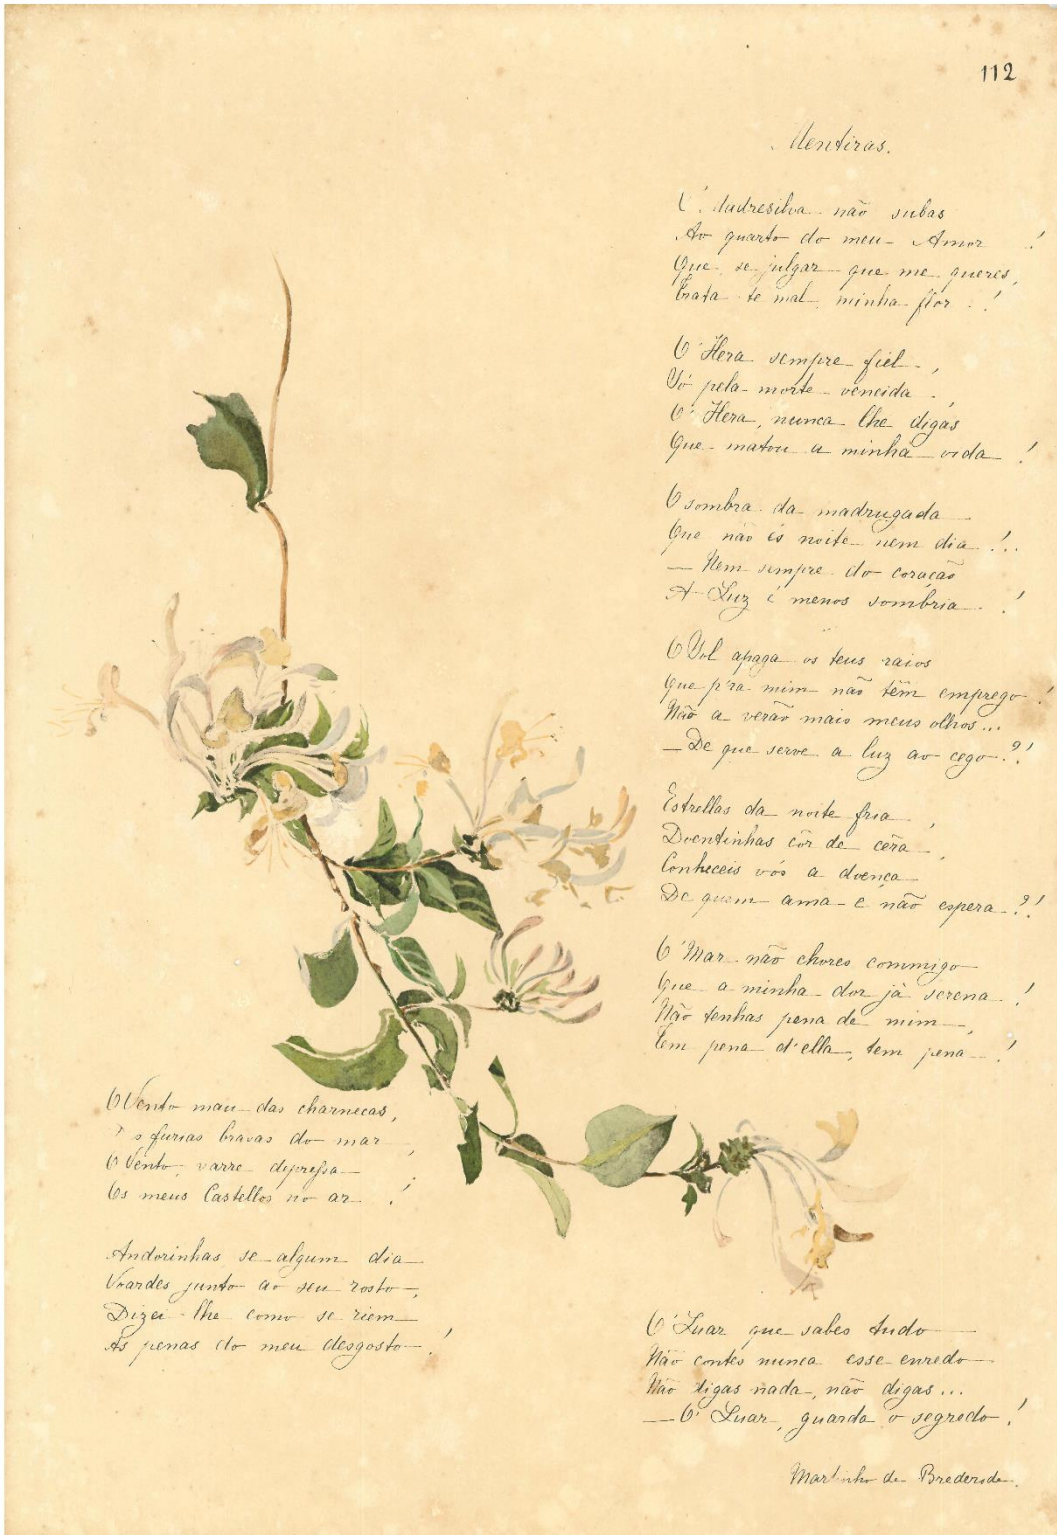 112
Mentiras.
Ó Madresilva não subas
Ao quarto do meu Amor !
Que se julgar que me queres,
Trata-te mal, minha flor . !
Ó Hera sempre fiel ,
Só pela morte vencida . ,
Ó Hera, nunca lhe digas
Que matou a minha vida !
Ó sombra da madrugada
Que não és noite nem dia !..
— Nem sempre do coração
A Luz é menos sombria . !
Ó Sol apaga os teus raios
Que p'ra mim não têm emprego !
Não a verão mais meus olhos...
— De que serve a luz ao cego ?!
Estrellas da noite fria ,
Doentinhas côr de cêra ,
Conheceis vós a doença
De quem ama e não espera ?!
Ó Mar não chores commigo
Que a minha dor já serena !
Não tenhas pena de mim ,
Tem pena d'ella, tem pena !
Ó Vento mau das charnecas,
s furias bravas do mar ,
Ó Vento, varre depressa
Os meus Castellos no ar !
Andorinhas se algum dia
Voardes junto ao seu rosto ,
Dizei-lhe como se riem
As penas do meu desgosto !
Ó Luar que sabes tudo
Não contes nunca esse enredo
Não digas nada, não digas...
— Ó Luar, guarda o segredo !
Martinho de Brederode.